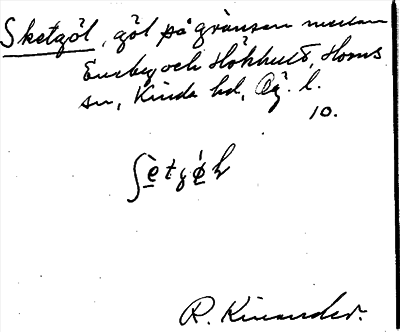 Sketgöl, göl på gränsen mellan
Enebg och Hökhult, Horns
sn, Kinda hd, Ög. l.
10.
ʃètgø̀l
R. Kinander.